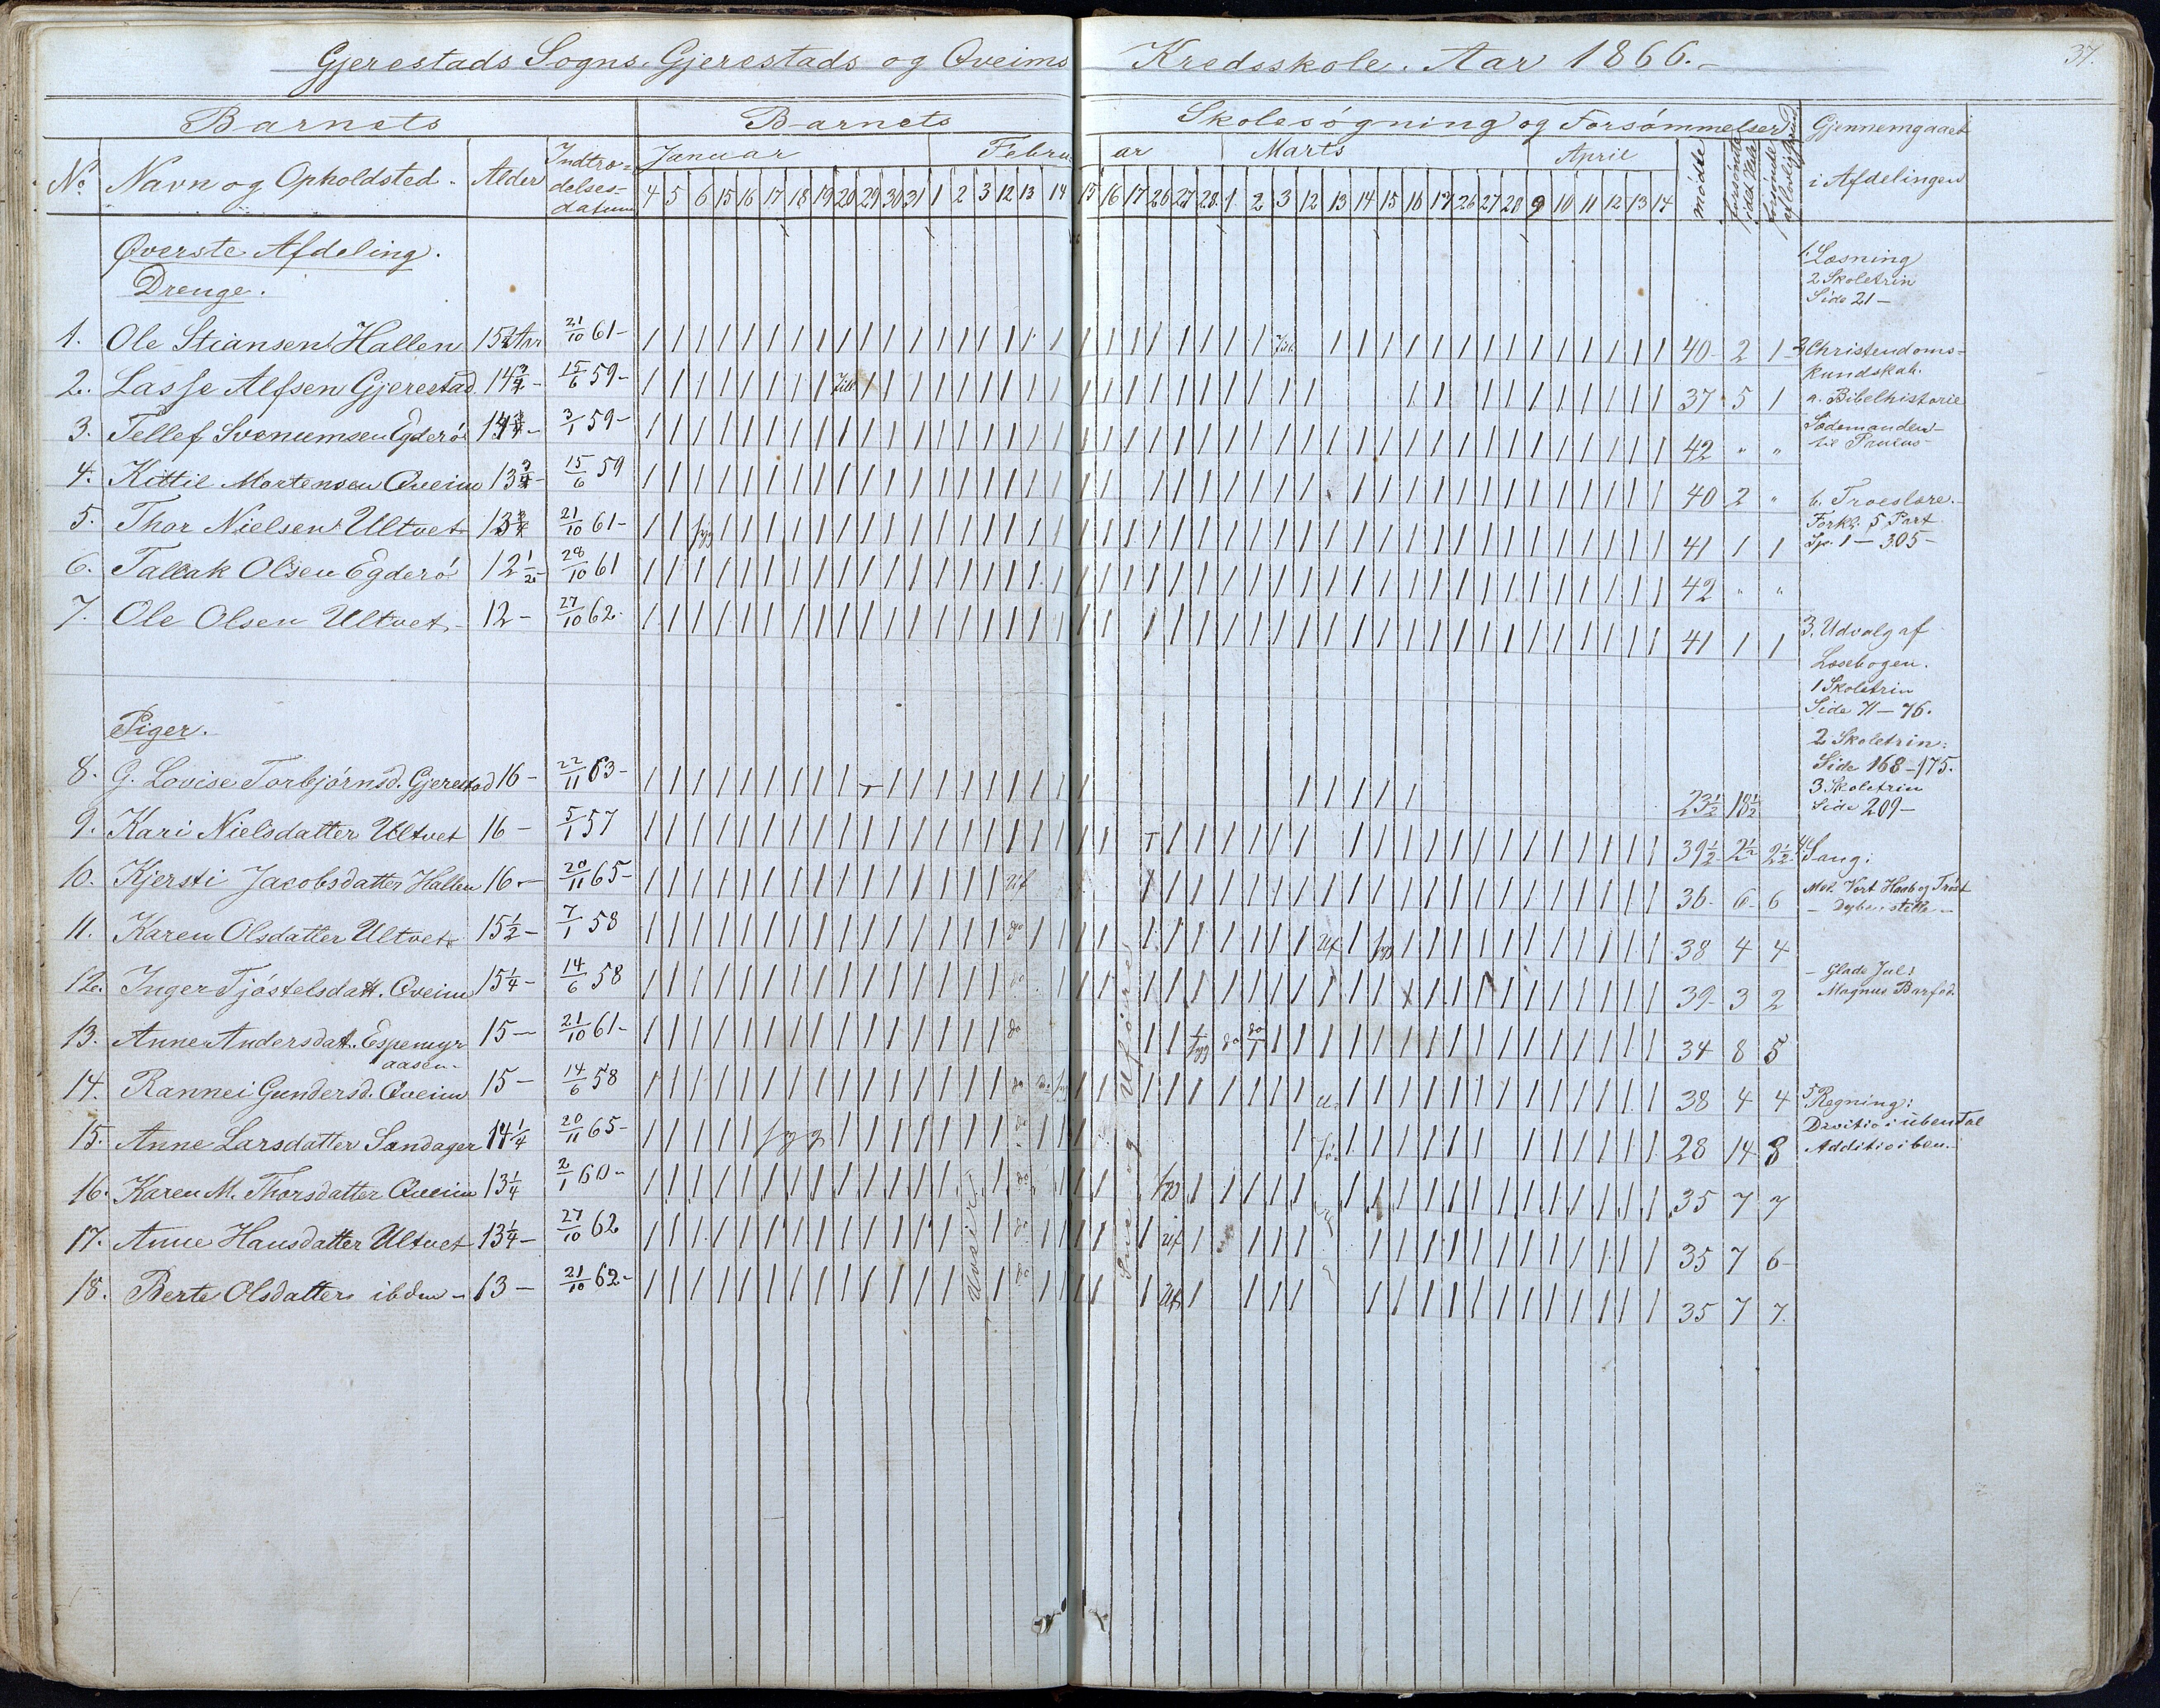 Gjerestads Sogns, Gjerestads og Qveims Kredsskole. Aar 1866.
37.
Barnets Barnets Skolesøgning og Forsømmelser Gjennemgaaet i Afdelingen
No. Navn og Opholdsted. Alder Indtrædelsesdatum Januar Februar Marts April mødte
4 5 6 15 16 17 18 19 20 29 30 31 1 2 3 12 13 14 15 16 17 26 27 28 1 2 3 12 13 14 15 16 17 26 27 28 9 10 11 12 13 14
Øverste Afdeling.
Drenge.
1. Ole Stiansen Hallen 15 Aar 21/10 61- 40 2 1
2. Lasse Alfsen Gjerestad 14 3/4 - 15/6 59- 37 5 1
3. Tellef Svenumsen Egderø 14 3/4 - 3/1 59- 42 " "
4. Kittil Mortensen Qveim 13 3/4 - 15/6 59 40 2 "
5. Thor Nielsen Ultvet 13 3/4 21/10 61- 41 1 1
6. Tallak Olsen Egderø 12 1/2 - 28/10 61 42 " "
7. Ole Olsen Ultvet. 12 - 27/10 62. 41 1 1
Piger.
8. G. Lovise Torbjørnsd. Gjerestad 16 - 22/11 63- 23 1/2 18 1/2
9. Kari Nielsdatter Ultvet 16 - 5/1 57 39 1/2 2 1/2 2 1/2
10. Kjersti Jacobsdatter Hallen 16 - 20/11 65- 36- 6 6
11. Karen Olsdatter Ultvet 15 1/2 - 7/1 58 38 4 4
12. Inger Tjøstelsdatt. Qveim 15 1/4 - 14/6 58 39- 3 2
13. Anne Andersdatt. Espemyr
aasen-
15 - 21/10 61- 34 8 5
14. Rannei Gundersd. Qveim 15 - 14/6 58 38 4 4
15. Anne Larsdatter Sandager 14 1/4 20/11 65- syg 28 14 8
16. Karen M. Thorsdatter Qveim 13 1/4 2/1 60- 35 7 7
17. Anne Hansdatter Ultvet 13 1/4 - 27/10 62 35 7 6
18. Berte Olsdatter ibdm - 13 - 21/10 62- 35 7 7.
Uveir
Sne og Uføre
1. Læsning
2 Skoletrin
Side 21 -
2 Christendoms-
kundskab.
a. Bibelhistorie
Sædemanden-
til Paulus-
b. Troeslære.
Forkl. 5 Part
Sp. 1 - 305 -
3. Udvalg af
Læsebogen.
1 Skoletrin
Side 71 - 76.
2 Skoletrin:
Side 168 - 175.
3 Skoletrin
Side 209 -
4 Sang:
Mel. Vort Haab og Trøst
- Dybe, stille -
- Glade Jul:
Magnus Barfod.
5 Regning:
Divitio i ubental
Additio i ben.-